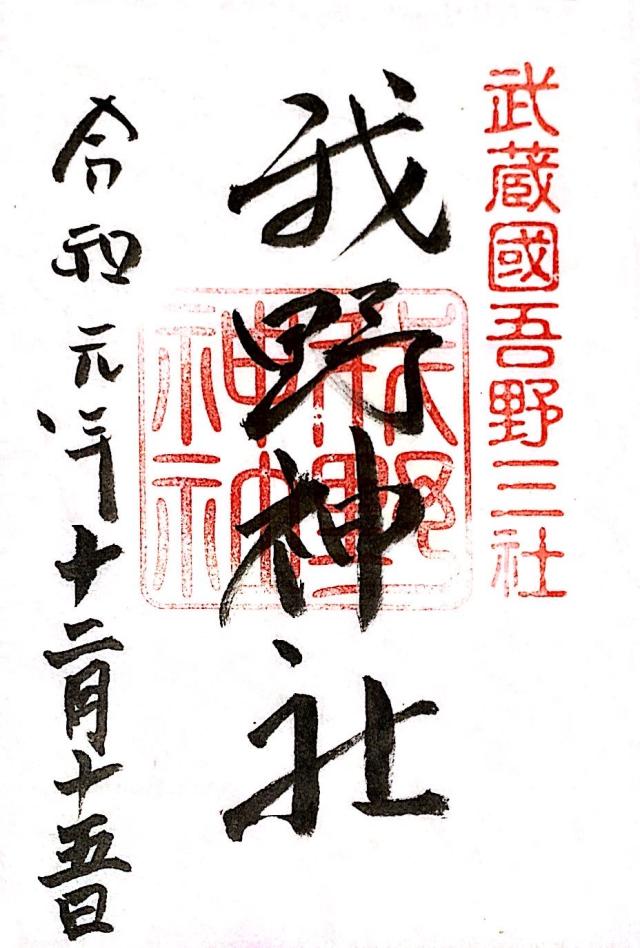 武蔵國吾野三社
我野神社
令和元年十二月十五日